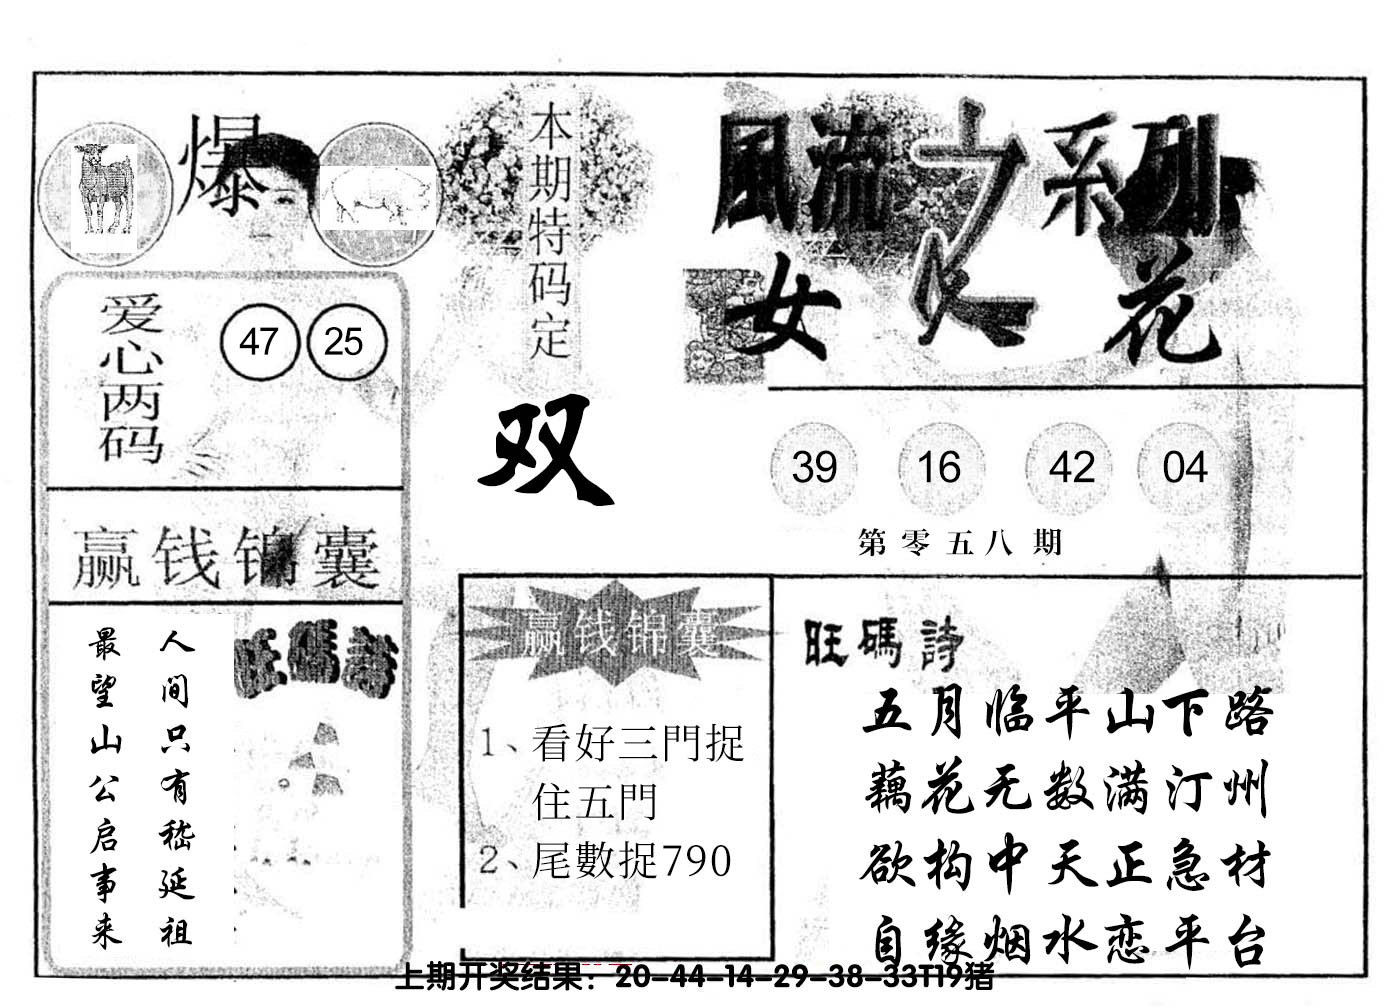 爆
本期特码定
双
風流之系列
女人花
爱心两码
47 25
39 16 42 04
第零五八期
赢钱锦囊
旺碼詩
人间只有嵇延祖
最望山公启事来
赢钱锦囊
1、看好三門捉
住五門
2、尾數捉790
旺碼詩
五月临平山下路
藕花无数满汀州
欲构中天正急材
自缘烟水恋平台
上期开奖结果：20-44-14-29-38-33T19猪